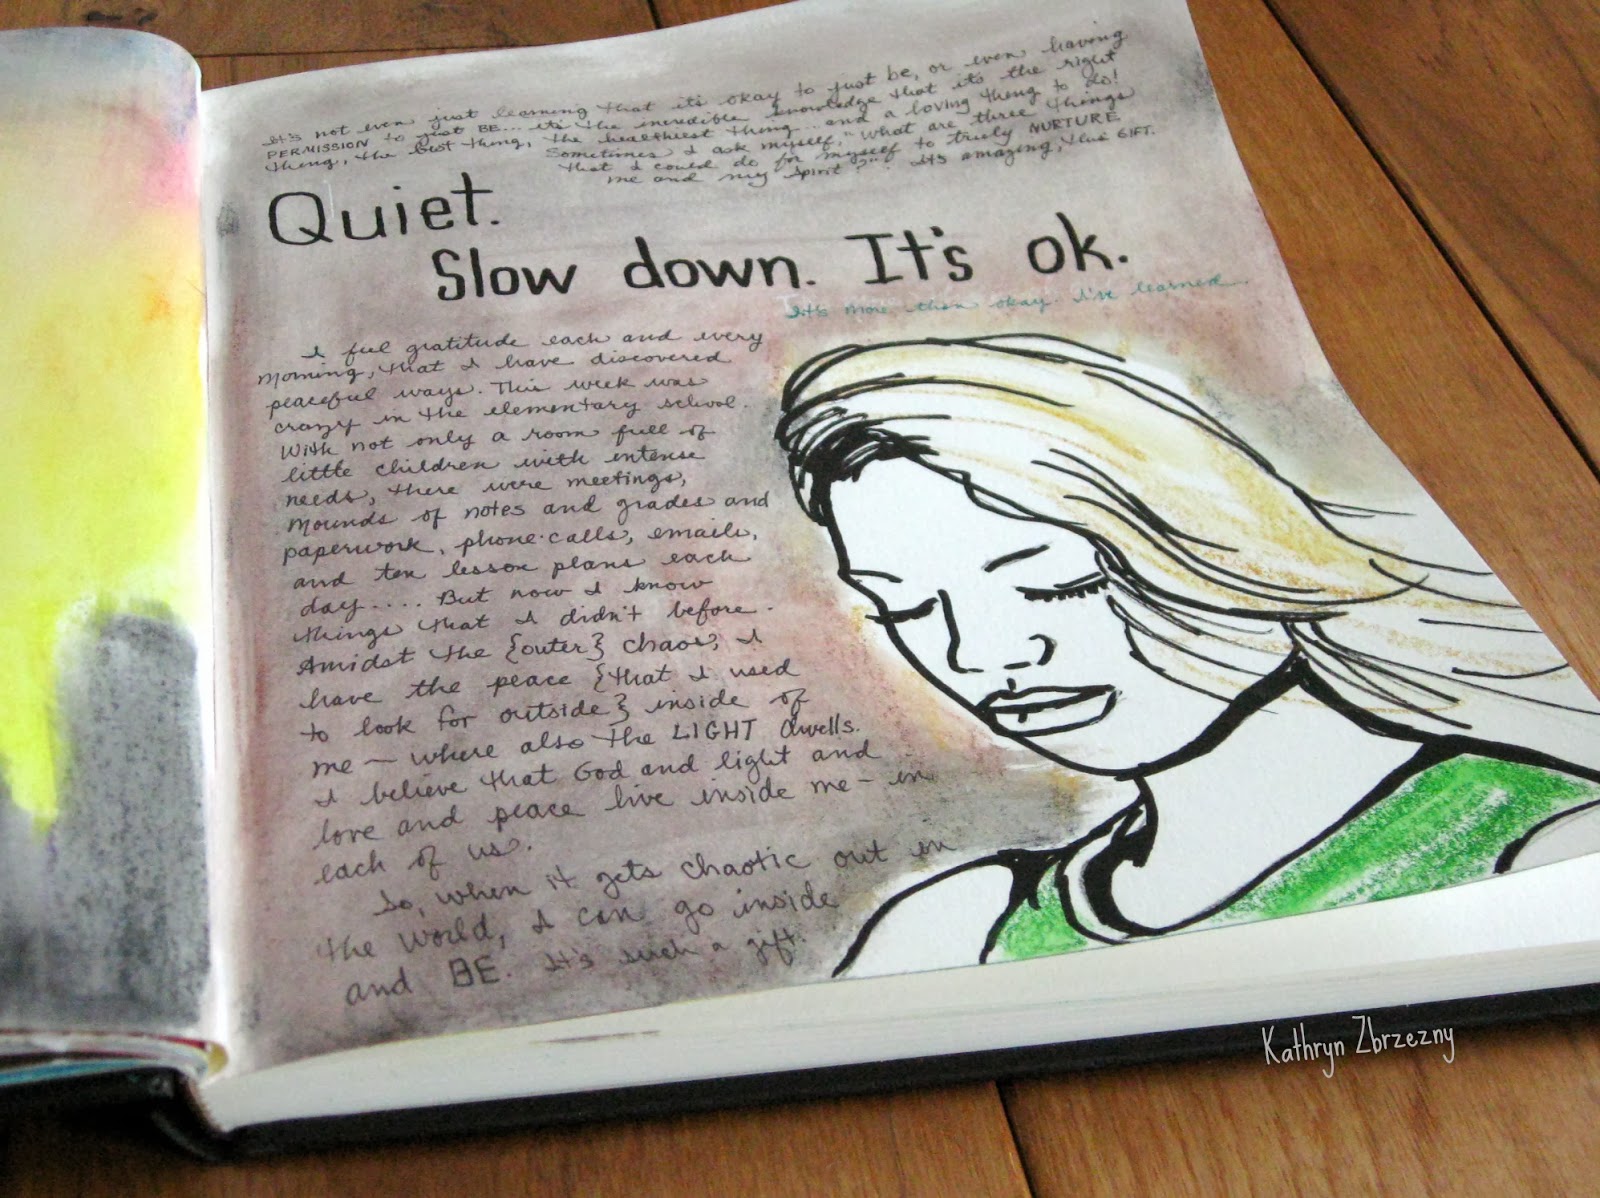 It's not even just learning that it's okay to just be, or even having
PERMISSION to just BE... it's the incredible knowledge that it's the right
thing, the best thing, the healthiest thing... and a loving thing to do!
Sometimes I ask myself, "What are three things
that I could do for myself to truly NURTURE
me and my spirit?" It's amazing, this GIFT.
Quiet.
Slow down. It's ok.
It's more than okay. I've learned.
I feel gratitude each and every
morning, that I have discovered
peaceful ways. This week was
crazy in the elementary school.
With not only a room full of
little children with intense
needs, there were meetings,
mounds of notes and grades and
paperwork, phone calls, emails,
and ten lesson plans each
day.... But now I know
things that I didn't before.
Amidst the {outer} chaos, I
have the peace {that I used
to look for outside} inside of
me — where also the LIGHT dwells.
I believe that God and light and
love and peace live inside me — in
each of us.
So, when it gets chaotic out in
the world, I can go inside
and BE. It's such a gift.
Kathryn Zbrzezny